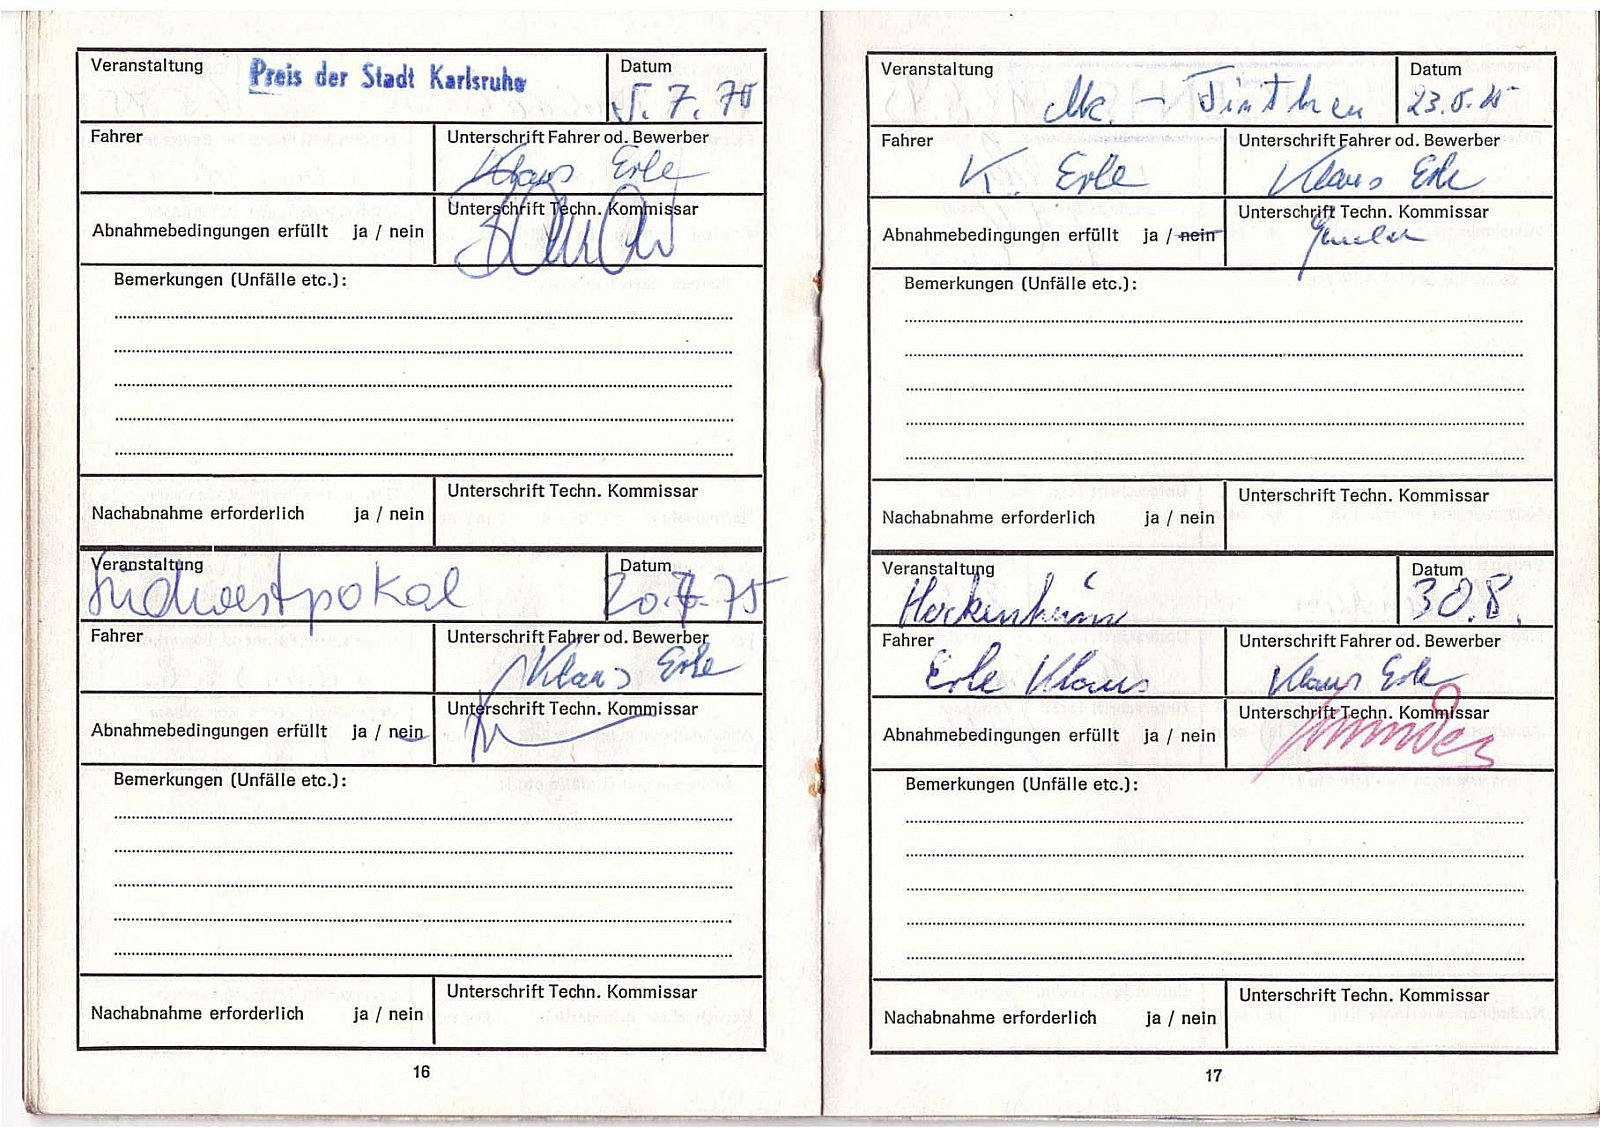 Veranstaltung Preis der Stadt Karlsruhe Datum
5. 7. 75
Fahrer Unterschrift Fahrer od. Bewerber
Klaus Erle
Unterschrift Techn. Kommissar
Abnahmebedingungen erfüllt ja / nein
Bemerkungen (Unfälle etc.):
Unterschrift Techn. Kommissar
Nachabnahme erforderlich ja / nein
Veranstaltung Datum
Südwestpokal 20.7.75
Fahrer Unterschrift Fahrer od. Bewerber
Klaus Erle
Unterschrift Techn. Kommissar
Abnahmebedingungen erfüllt ja / nein
Bemerkungen (Unfälle etc.):
Unterschrift Techn. Kommissar
Nachabnahme erforderlich ja / nein
16
Veranstaltung Datum
Mc. –
Fahrer Unterschrift Fahrer od. Bewerber
K. Erle Klaus Erle
Unterschrift Techn. Kommissar
Abnahmebedingungen erfüllt ja / nein
Bemerkungen (Unfälle etc.):
Unterschrift Techn. Kommissar
Nachabnahme erforderlich ja / nein
Veranstaltung Datum
Hockenheim 30.8.
Fahrer Unterschrift Fahrer od. Bewerber
Erle Klaus Klaus Erle
Unterschrift Techn. Kommissar
Abnahmebedingungen erfüllt ja / nein
Bemerkungen (Unfälle etc.):
Unterschrift Techn. Kommissar
Nachabnahme erforderlich ja / nein
17